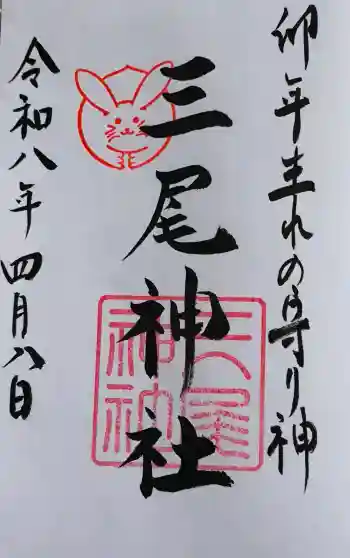 卯年生れの守り神
三尾神社
三尾神社
令和八年四月八日